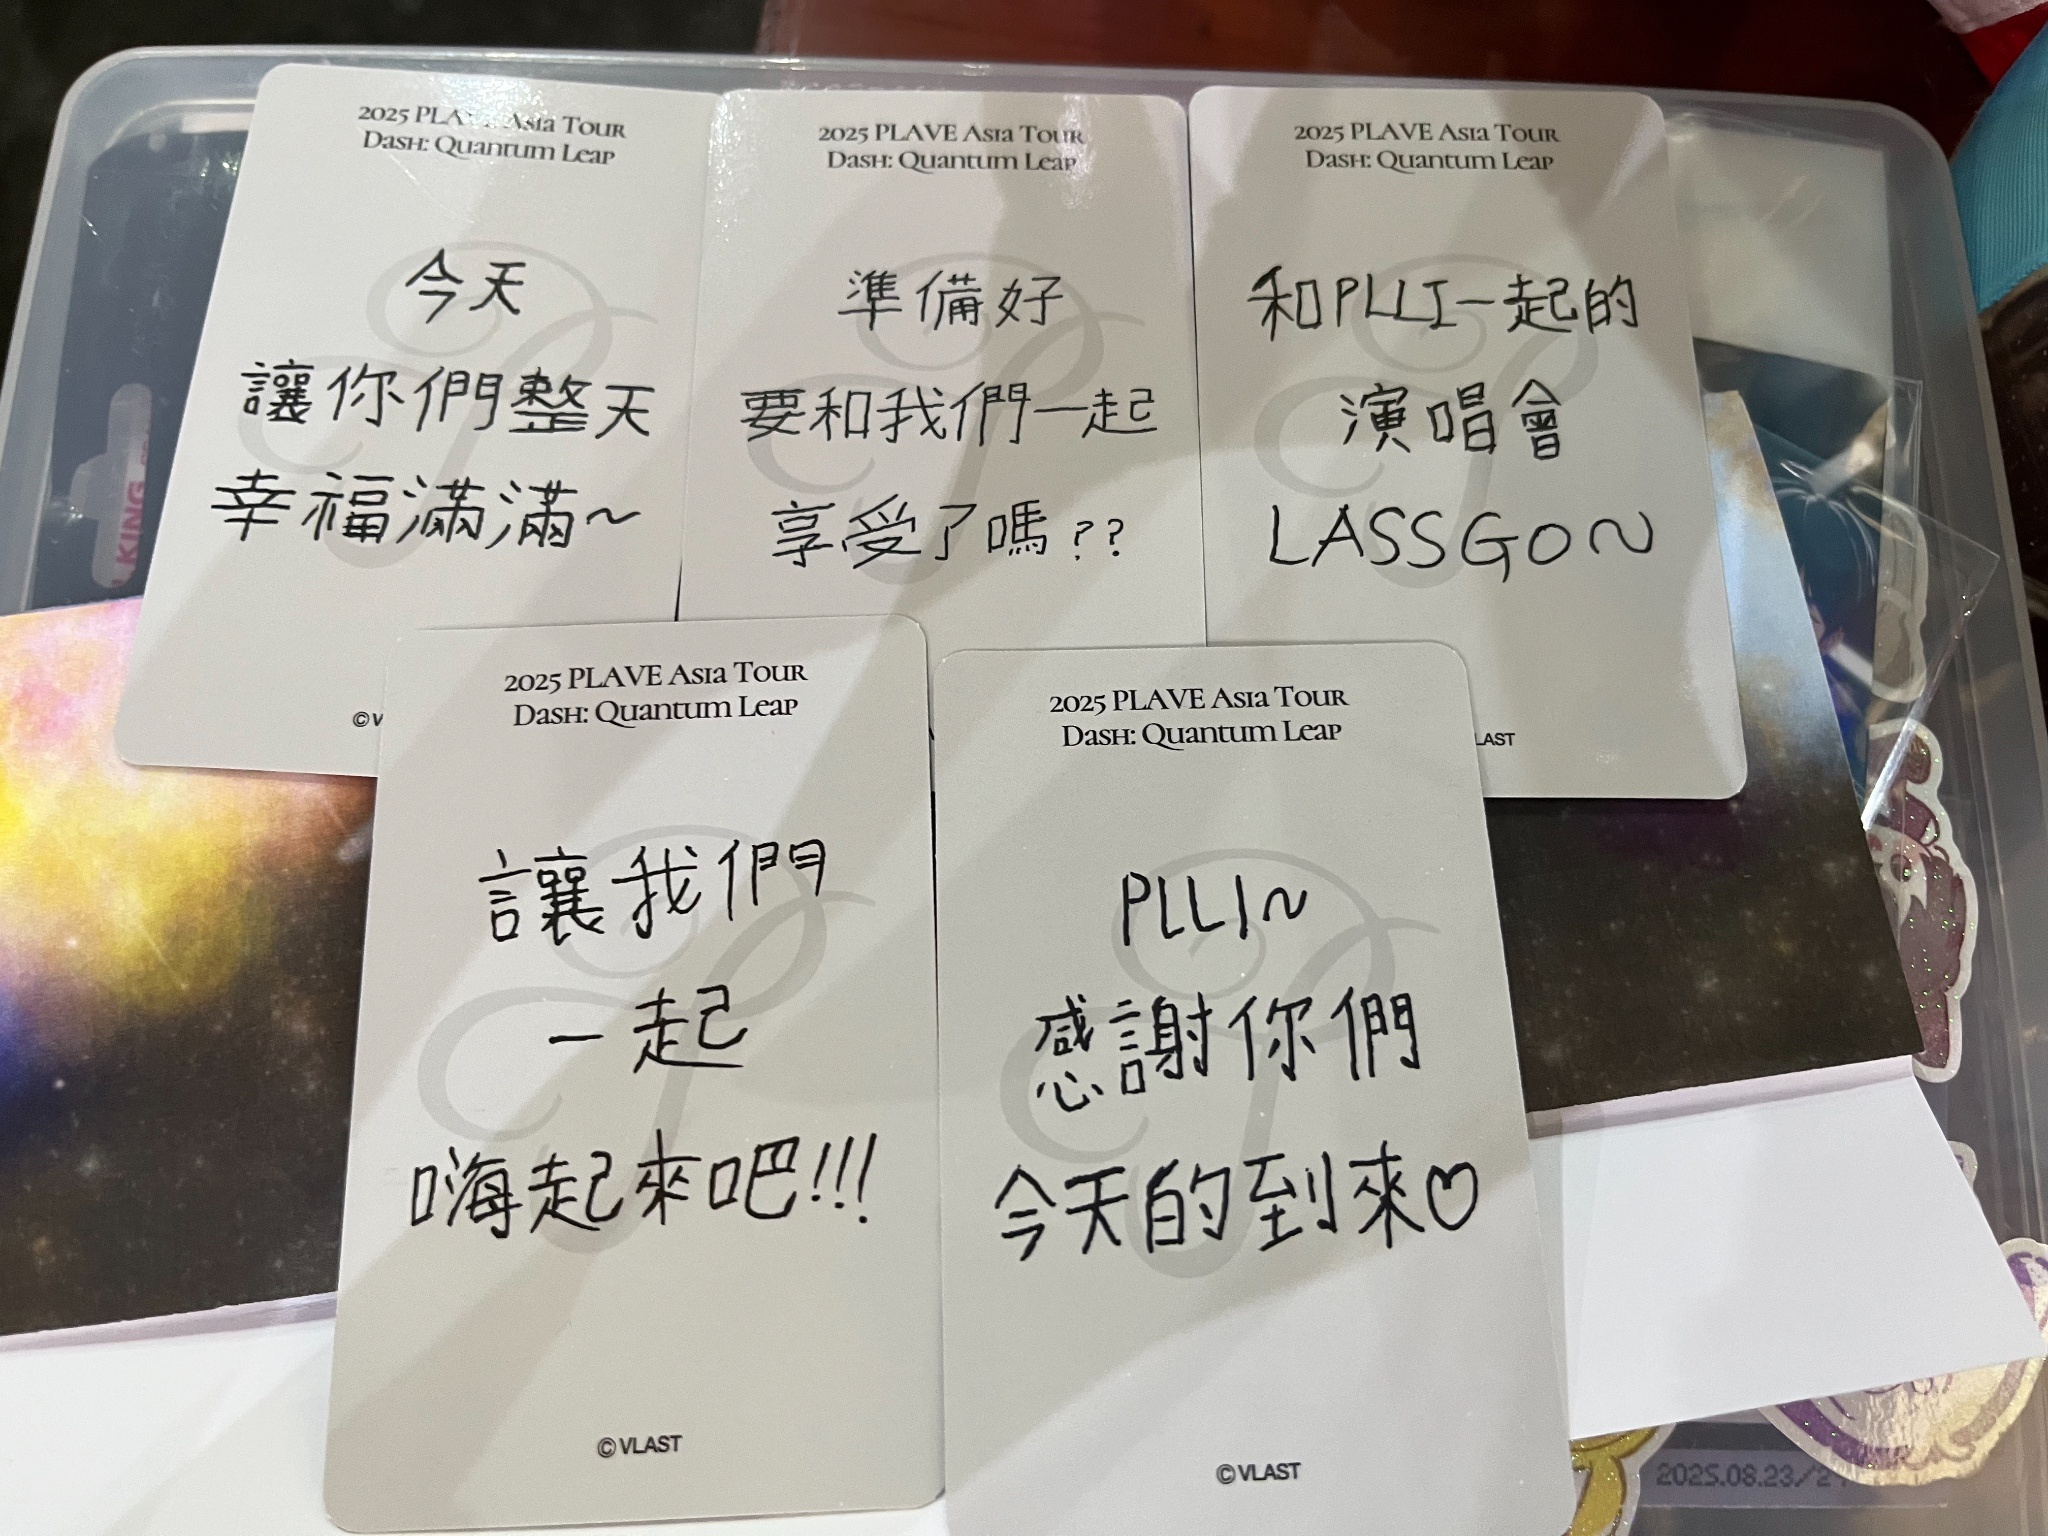 2025 PLAVE Asia Tour
Dash: Quantum Leap
今天
讓你們整天
幸福滿滿~
©V
2025 PLAVE Asia Tour
Dash: Quantum Leap
準備好
要和我們一起
享受了嗎??
2025 PLAVE Asia Tour
Dash: Quantum Leap
和PLLI一起的
演唱會
LASSGO~
LAST
2025 PLAVE Asia Tour
Dash: Quantum Leap
讓我們
一起
嗨起來吧!!!
©VLAST
2025 PLAVE Asia Tour
Dash: Quantum Leap
PLLI~
感謝你們
今天的到來♡
©VLAST
KING
2025.08.23/2